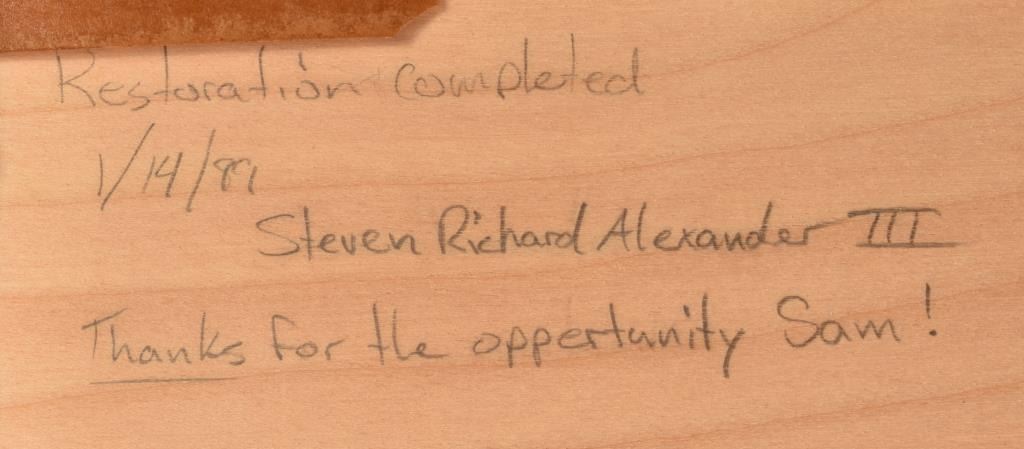 Restoration completed
1/14/89
Steven Richard Alexander III
Thanks for the oppertunity Sam!